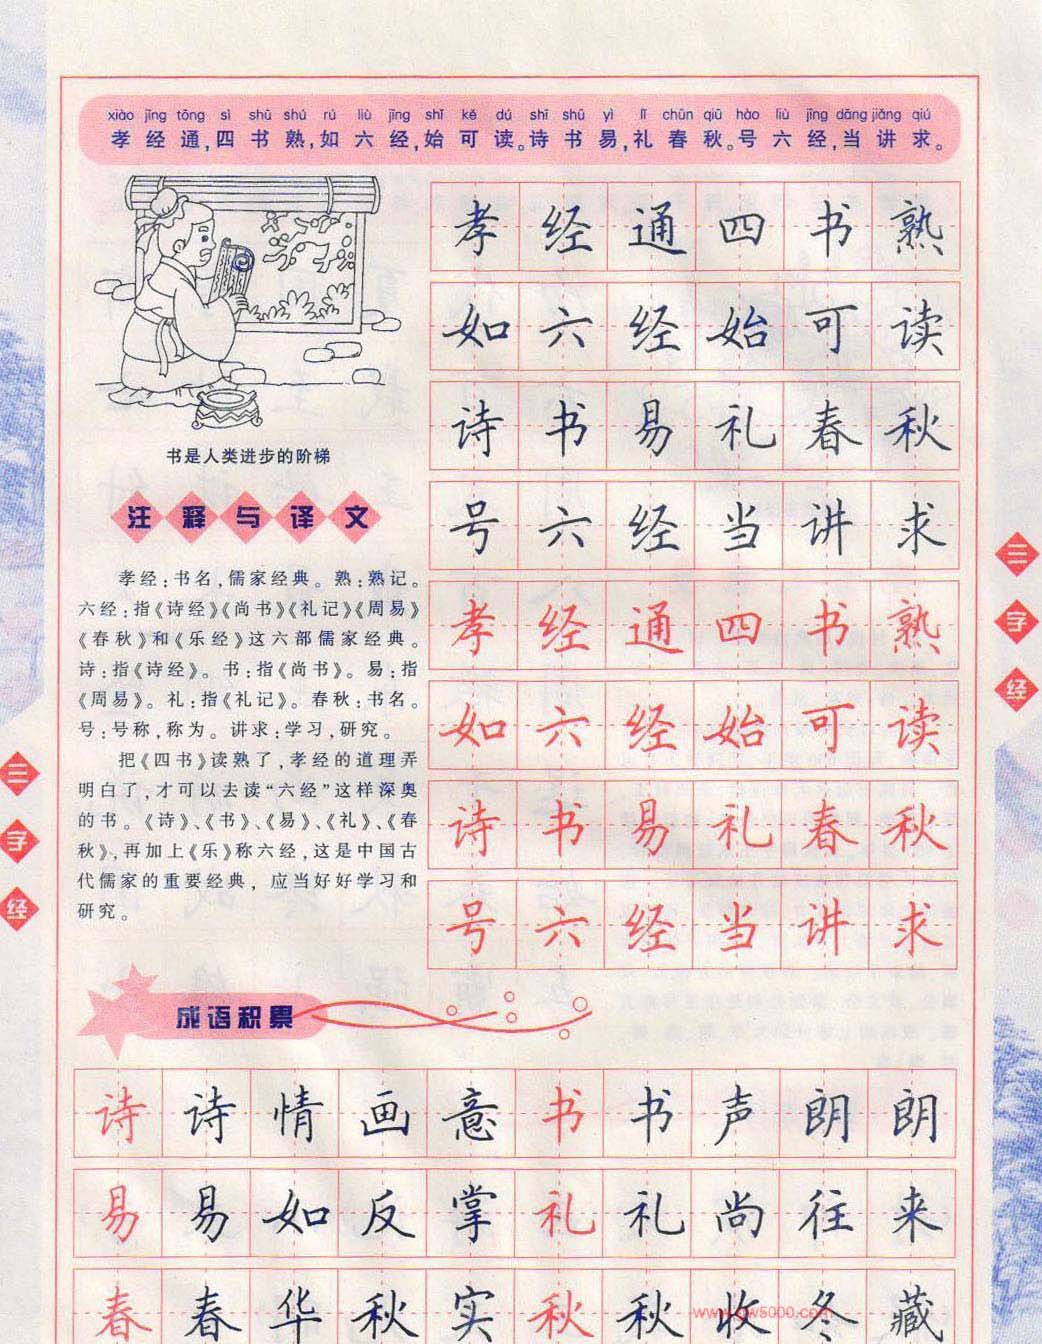 xiào jīng tōng sì shū shú rú liù jīng shǐ kě dú shī shū yì lǐ chūn qiū hào liù jīng dāng jiǎng qiú
孝经通,四书熟,如六经,始可读。诗书易,礼春秋。号六经,当讲求。
孝经通四书熟
如六经始可读
诗书易礼春秋
号六经当讲求
孝经通四书熟
如六经始可读
诗书易礼春秋
号六经当讲求
书是人类进步的阶梯
注释与译文
孝经:书名,儒家经典。熟:熟记。
六经:指《诗经》《尚书》《礼记》《周易》
《春秋》和《乐经》这六部儒家经典。
诗:指《诗经》。书:指《尚书》。易:指
《周易》。礼:指《礼记》。春秋:书名。
号:号称,称为。讲求:学习,研究。
把《四书》读熟了,孝经的道理弄
明白了,才可以去读“六经”这样深奥
的书。《诗》、《书》、《易》、《礼》、《春
秋》,再加上《乐》称六经,这是中国古
代儒家的重要经典,应当好好学习和
研究。
三字经
三字经
成语积累
诗诗情画意书书声朗朗
易易如反掌礼礼尚往来
春春华秋实秋秋收冬藏